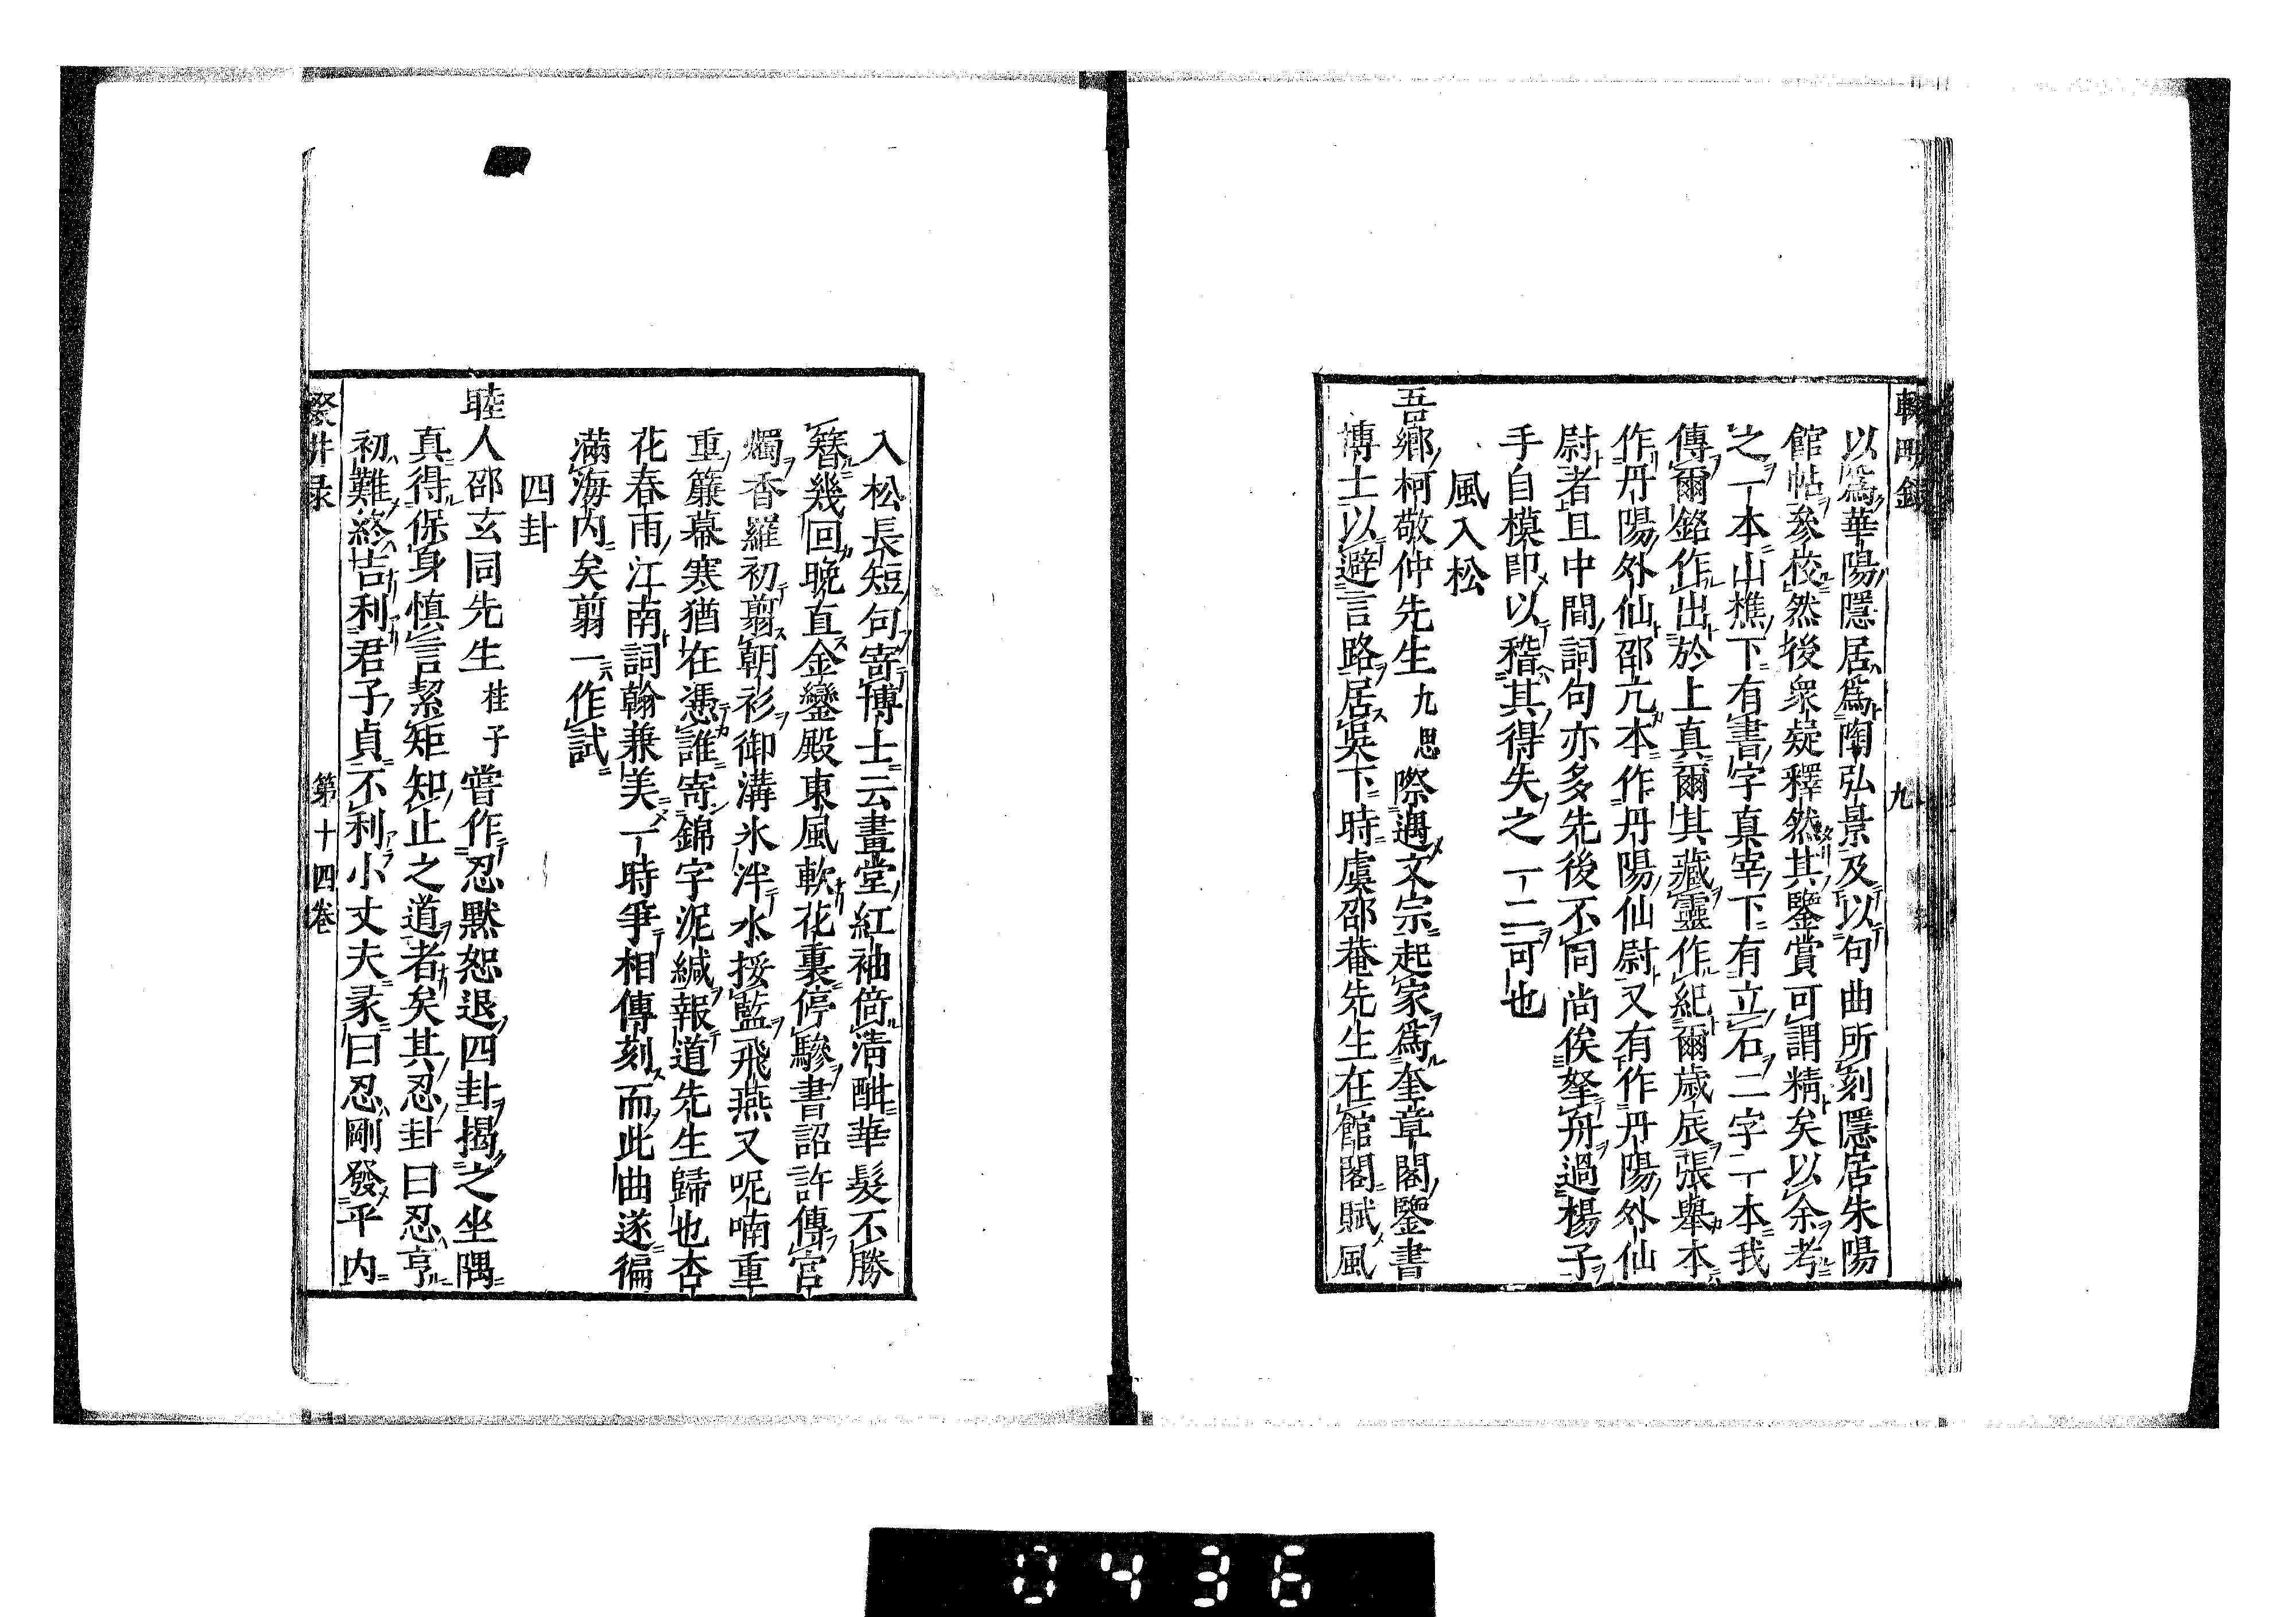 輟畊録
九
以爲華陽隱居爲陶弘景及以句曲所刻隱居朱陽
館帖參校然後衆疑釋然其鑒賞可謂精矣以余考
之一本山樵下有書字真宰下有立石二字一本我
傳爾銘作出於上真爾其藏靈作紀爾歲辰張舉本
作丹陽外仙邵亢本作丹陽仙尉又有作丹陽外仙
尉者且中間詞句亦多先後不同尚俟拏舟過楊子
手自模印以稽其得失之一二可也
風入松
吾鄉柯敬仲先生九思際遇文宗起家爲奎章閣鑒書
博士以避言路居吳下時虞邵菴先生在館閣賦風
入松長短句寄博士云畫堂紅袖倚淸酣華髮不勝
簪幾回晚直金鑾殿東風軟花裏停驂書詔許傳宮
燭香羅初翦朝衫御溝氷泮水挼藍飛燕又呢喃重
重簾幕寒猶在憑誰寄錦字泥緘報道先生歸也杏
花春雨江南詞翰兼美一時爭相傳刻而此曲遂徧
滿海内矣翦一作試
四卦
睦人邵玄同先生桂子嘗作忍默恕退四卦揭之坐隅
真得保身慎言絜矩知止之道者矣其忍卦曰忍亨
初難終吉利君子貞不利小丈夫彖曰忍剛發乎内
輟畊录
第十四卷
0436